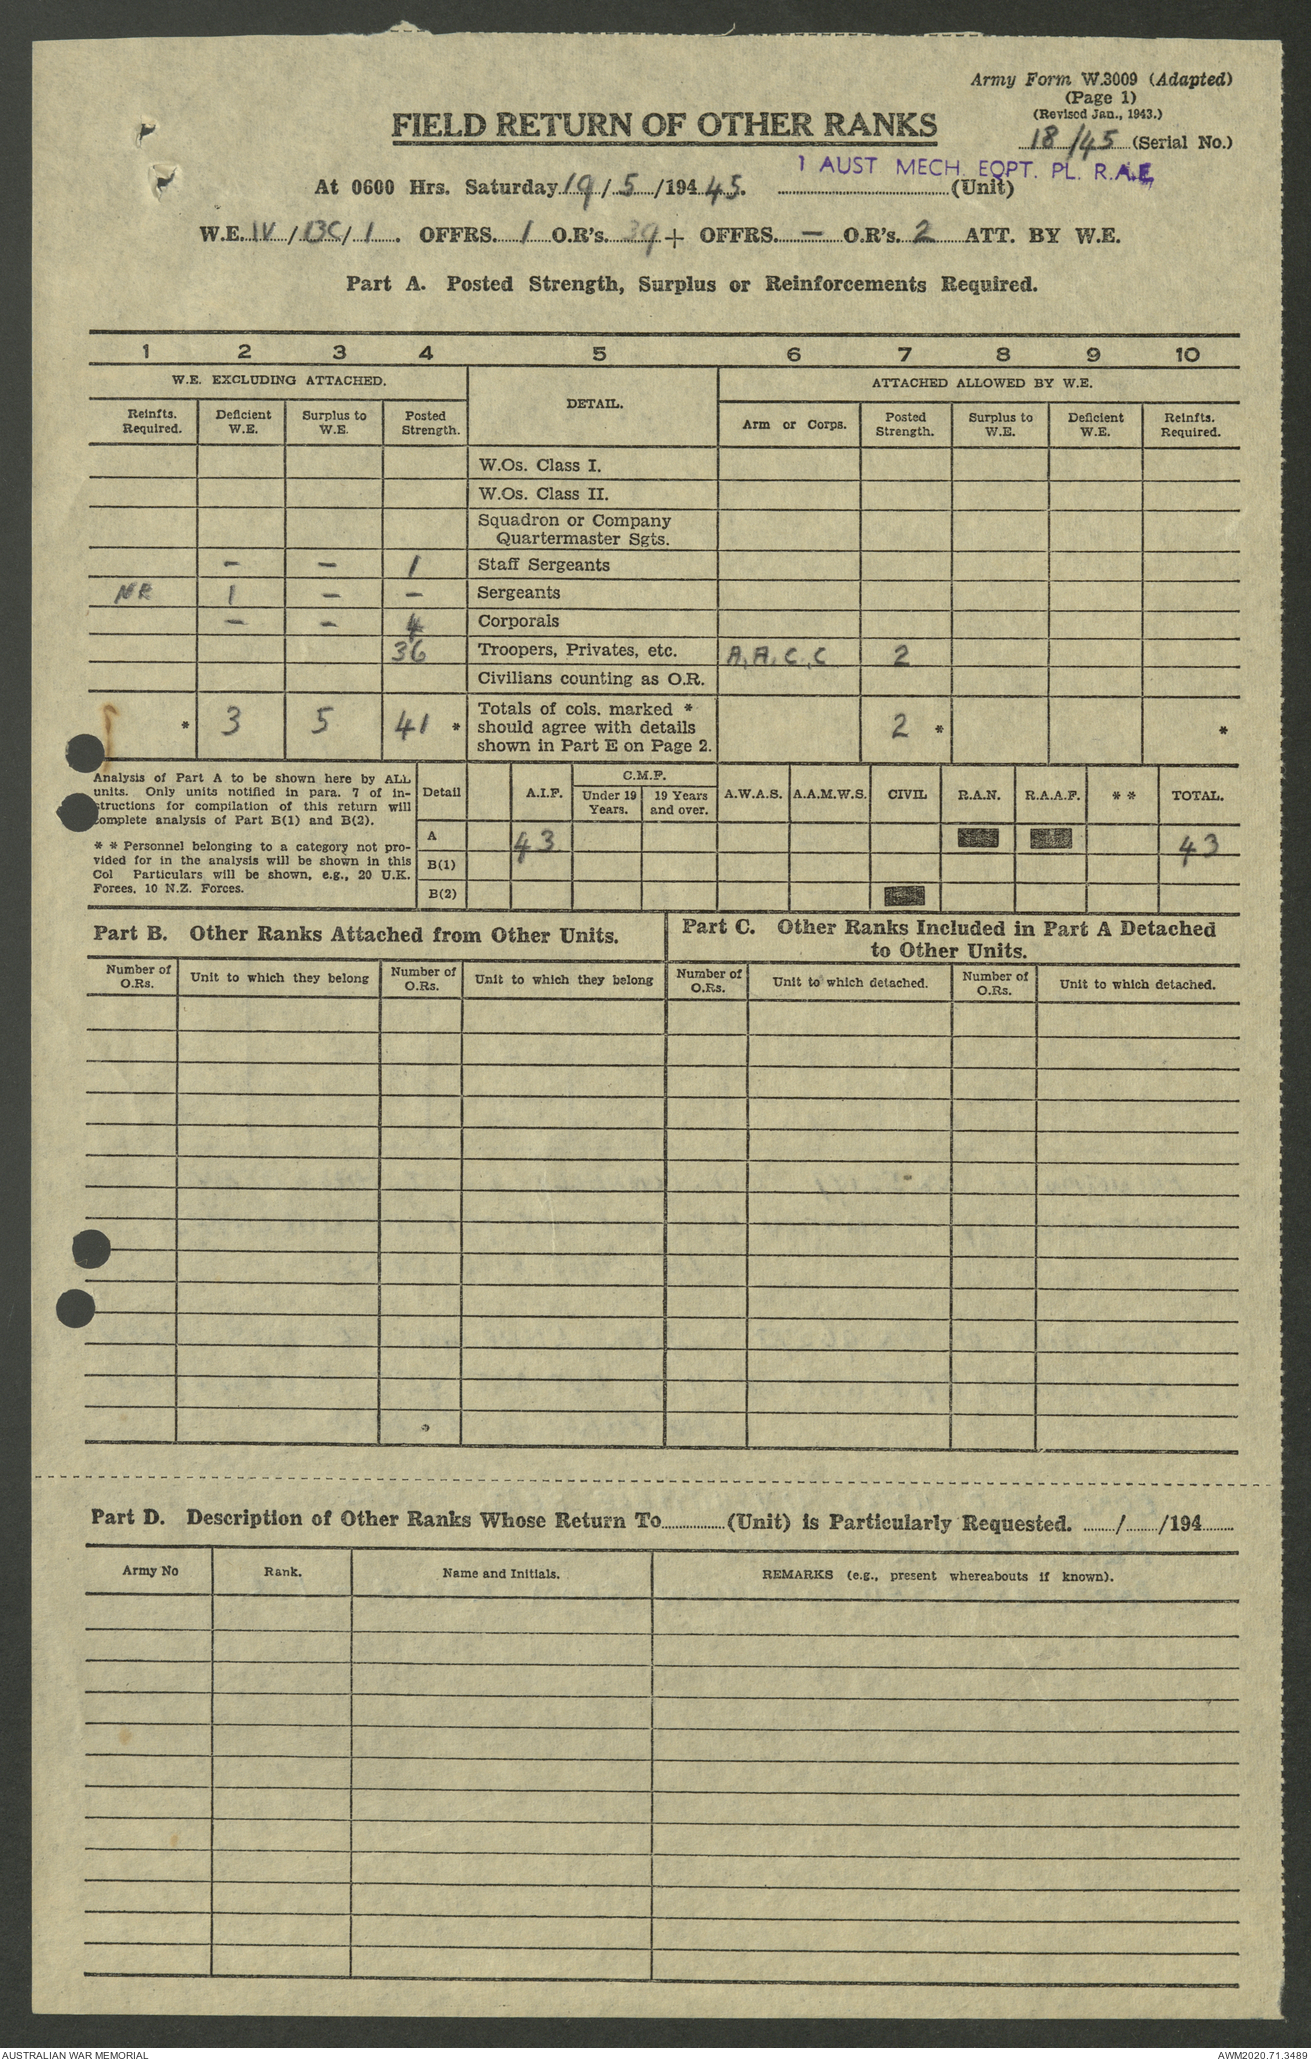 Army Form W.3009 (Adapted)
(Page 1)
(Revised Jan., 1943.)
FIELD RETURN OF OTHER RANKS
18/45 (Serial No.)
1 AUST MECH. EQPT. PL. R.A.E
At 0600 Hrs. Saturday 19/5/194 45. (Unit)
W.E. IV/13C/1. OFFRS. 1 O.R's. 39 + OFFRS. — O.R's. 2 ATT. BY W.E.
Part A. Posted Strength, Surplus or Reinforcements Required.
1 2 3 4 5 6 7 8 9 10
W.E. EXCLUDING ATTACHED. DETAIL. ATTACHED ALLOWED BY W.E.
Reinfts. Required. Deficient W.E. Surplus to W.E. Posted Strength. Arm or Corps. Posted Strength. Surplus to W.E. Deficient W.E. Reinfts. Required.
W.Os. Class I.
W.Os. Class II.
Squadron or Company
Quartermaster Sgts.
— — 1 Staff Sergeants
NR 1 — — Sergeants
— — 4 Corporals
36 Troopers, Privates, etc. A.A.C.C 2
Civilians counting as O.R.
* 3 5 41 * Totals of cols. marked * 2 * *
should agree with details
shown in Part E on Page 2.
Analysis of Part A to be shown here by ALL
units. Only units notified in para. 7 of in-
structions for compilation of this return will
complete analysis of Part B(1) and B(2).
* * Personnel belonging to a category not pro-
vided for in the analysis will be shown in this
Col Particulars will be shown, e.g., 20 U.K.
Forces, 10 N.Z. Forces.
Detail A.I.F. C.M.F. Under 19 Years. 19 Years and over. A.W.A.S. A.A.M.W.S. CIVIL R.A.N. R.A.A.F. * * TOTAL.
A 43 43
B(1)
B(2)
Part B. Other Ranks Attached from Other Units.
Part C. Other Ranks Included in Part A Detached
to Other Units.
Number of O.Rs. Unit to which they belong Number of O.Rs. Unit to which they belong Number of O.Rs. Unit to which detached. Number of O.Rs. Unit to which detached.
Part D. Description of Other Ranks Whose Return To (Unit) is Particularly Requested. / /194
Army No Rank. Name and Initials. REMARKS (e.g., present whereabouts if known).
AUSTRALIAN WAR MEMORIAL AWM2020.71.3489